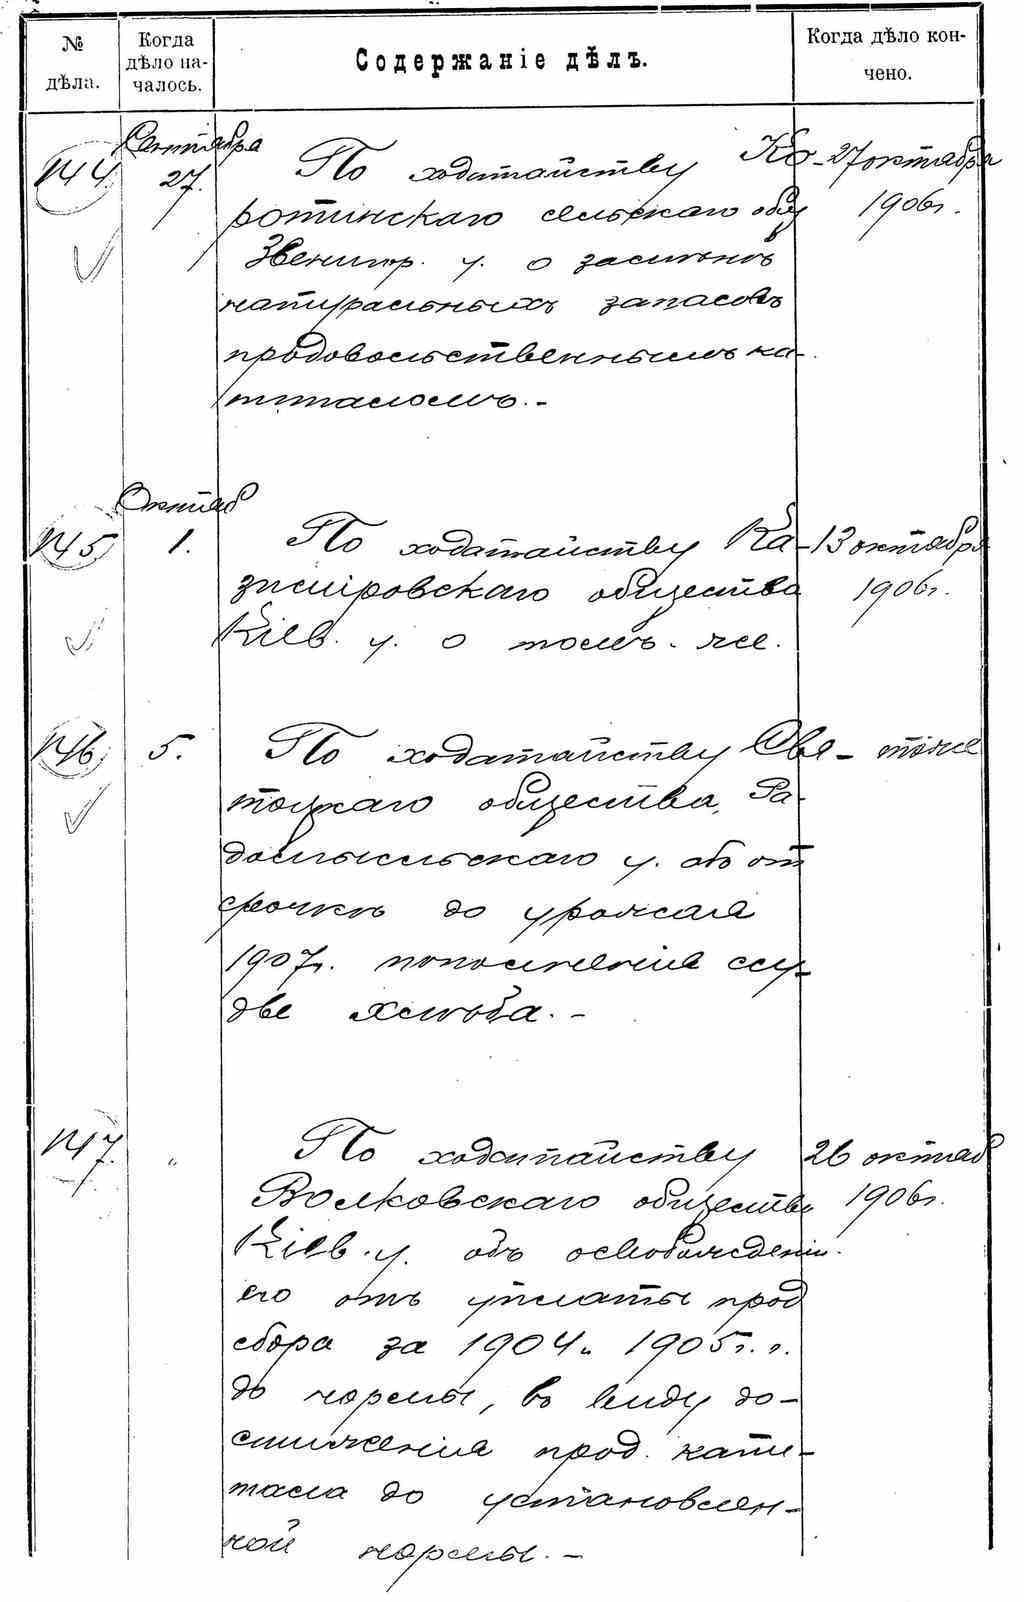 № дѣла.
Когда дѣло на-
чалось.
Содержаніе дѣлъ.
Когда дѣло кон-
чено.
144
Сентября
27.
По ходатайству Ко-
ротинскаго сельскаго общ
Звенигр. у. о замѣнѣ
натуральныхъ запасовъ
продовольственнымъ ка-
питаломъ.-
27 октября
1906г.
145
Октяб
1.
По ходатайству Ка-
зиміровскаго общества
Кіев. у. о томъ-же.
13 октября
1906г.
146
5.
По ходатайству Свя-
тоцкаго общества, Ра-
домысльскаго у. объ от
срочкѣ до урожая
1907г. пополненія ссу-
дъ хлѣба.-
тоже
147.
"
По ходатайству
Волковскаго общества
Кіев. у. объ освобожденіи
его отъ уплаты прод
сбора за 1904 и 1905г.г.
до нормы, въ виду до-
стиженія прод. капи-
тала до установлен-
ной нормы.-
26 октяб
1906г.